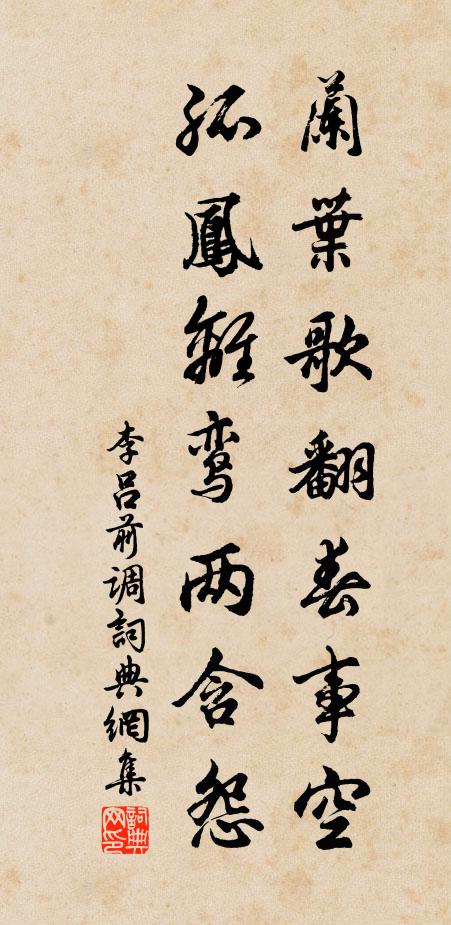 蘭葉歌翻春事空
孤鳳離鸾两含怨
李吕前调詞典網集
詞典网印